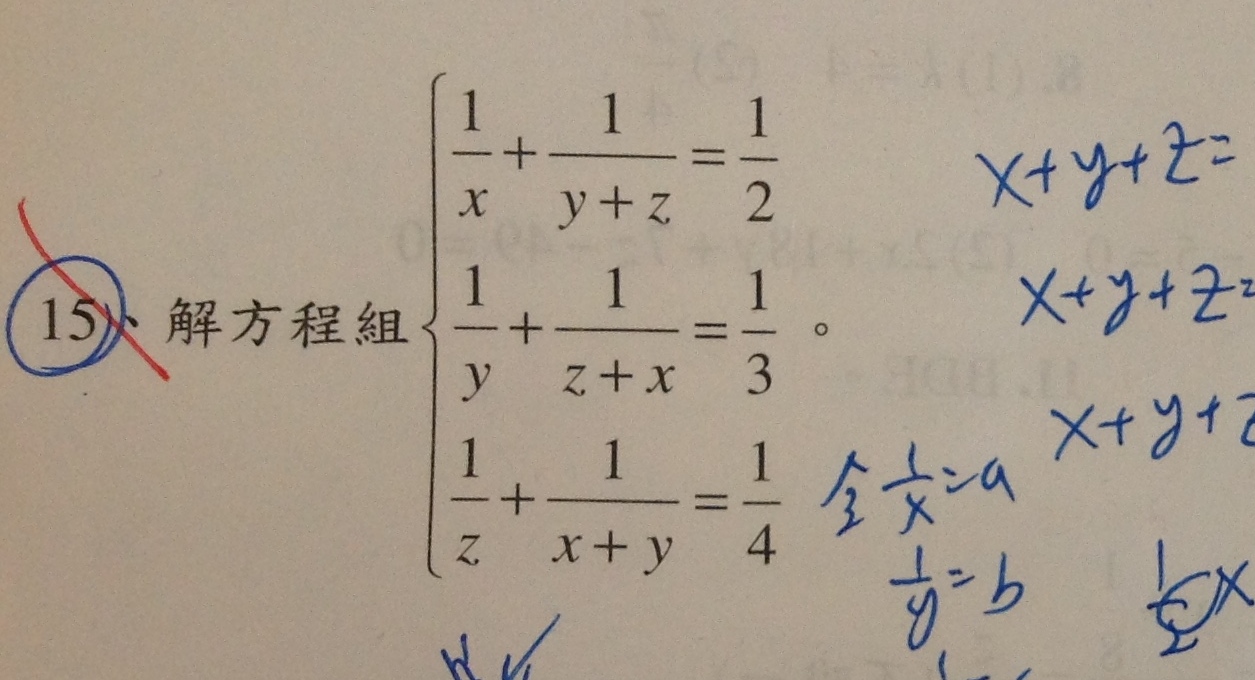 15、解方程組
1/x + 1/(y+z) = 1/2
1/y + 1/(z+x) = 1/3 。
1/z + 1/(x+y) = 1/4
x+y+z=
x+y+z=
x+y+z
令 1/x = a
1/y = b